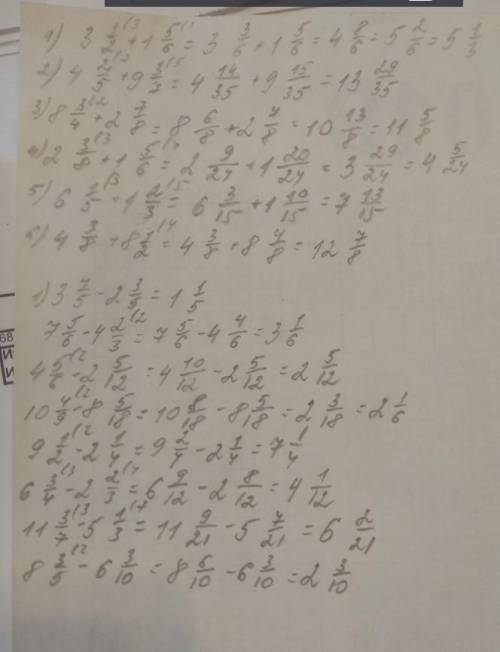 1) 3 1/2 + 1 5/6 = 3 3/6 + 1 5/6 = 4 8/6 = 5 2/6 = 5 1/3
2) 4 2/5 + 9 3/7 = 4 14/35 + 9 15/35 = 13 29/35
3) 8 3/4 + 2 7/8 = 8 6/8 + 2 7/8 = 10 13/8 = 11 5/8
4) 2 3/8 + 1 5/6 = 2 9/24 + 1 20/24 = 3 29/24 = 4 5/24
5) 6 1/5 + 1 2/3 = 6 3/15 + 1 10/15 = 7 13/15
6) 4 3/8 + 8 1/2 = 4 3/8 + 8 4/8 = 12 7/8
1) 3 4/5 - 2 3/5 = 1 1/5
7 5/6 - 4 2/3 = 7 5/6 - 4 4/6 = 3 1/6
4 5/6 - 2 5/12 = 4 10/12 - 2 5/12 = 2 5/12
10 4/9 - 8 5/18 = 10 8/18 - 8 5/18 = 2 3/18 = 2 1/6
9 1/2 - 2 1/4 = 9 2/4 - 2 1/4 = 7 1/4
6 3/4 - 2 2/3 = 6 9/12 - 2 8/12 = 4 1/12
11 3/7 - 5 1/3 = 11 9/21 - 5 7/21 = 6 2/21
8 3/5 - 6 3/10 = 8 6/10 - 6 3/10 = 2 3/10